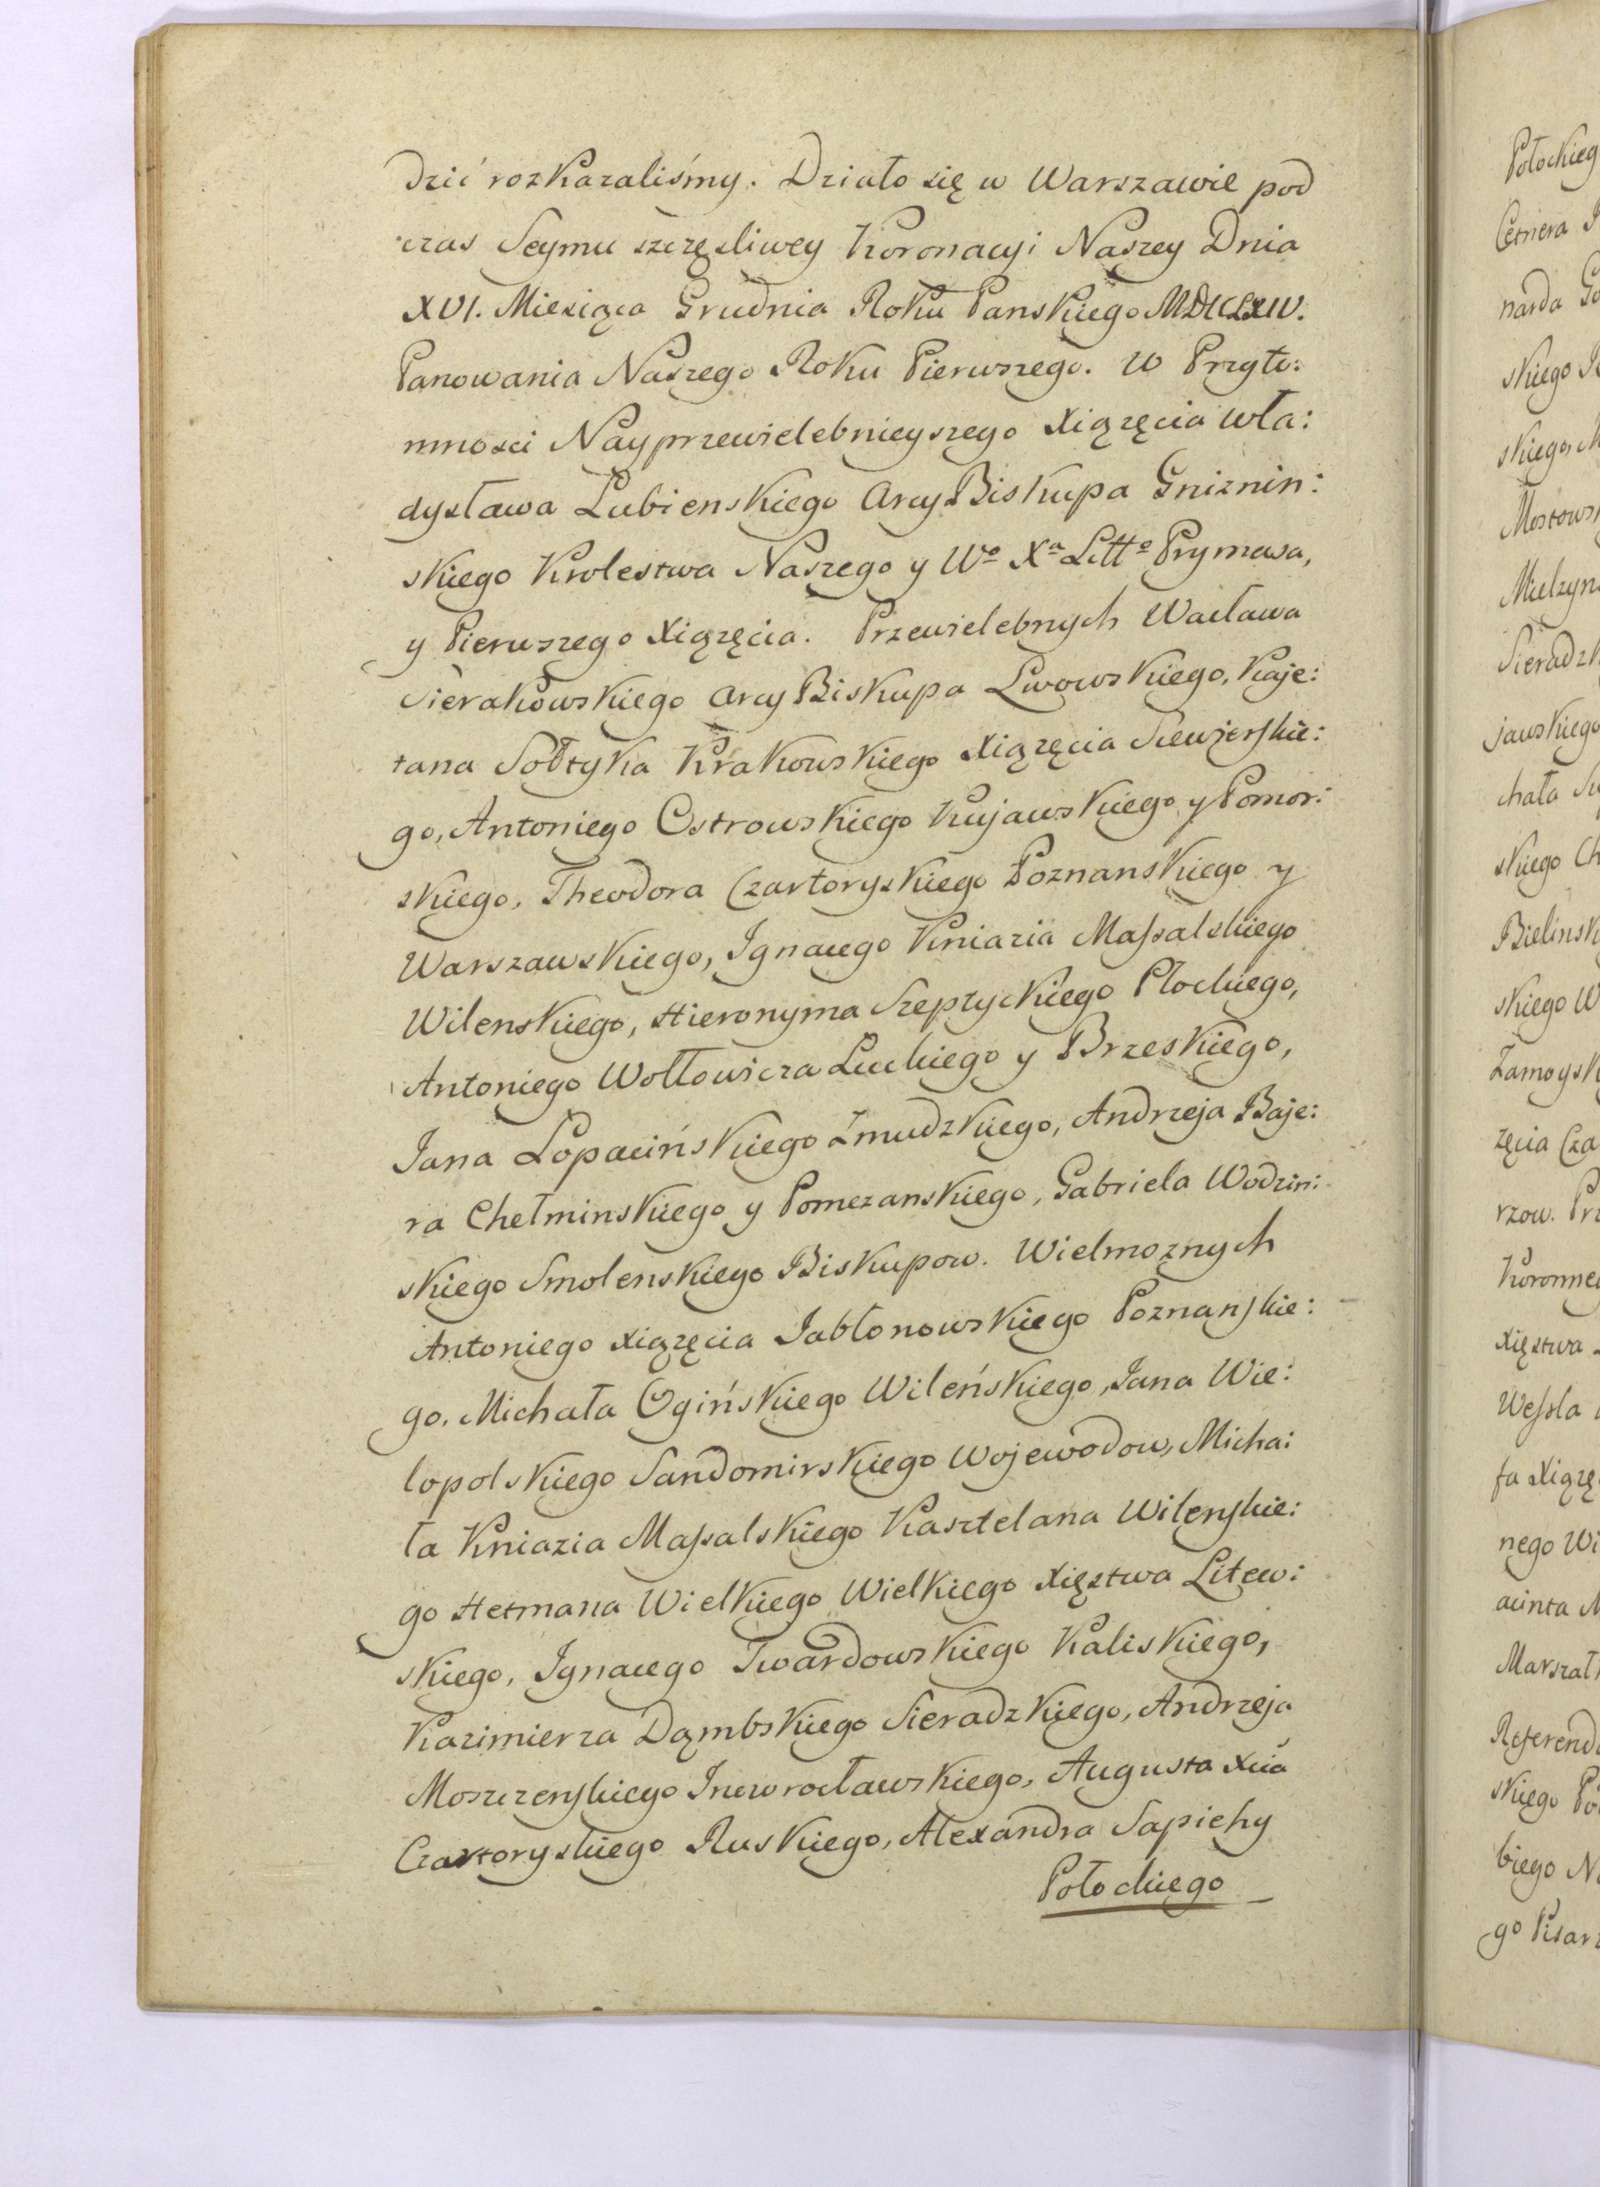 dzić rozkazaliśmy. Działo się w Warszawie pod
czas Seymu szczęsliwey Koronacyi Naszey Dnia
XVI. Miesiąca Grudnia Roku Panskiego MDCCLXIV.
Panowania Naszego Roku Pierwszego. W Przyto:
mnosci Nayprzewielebnieyszego Xiązęcia Wła:
dysława Lubienskiego ArcyBiskupa Gniznin:
skiego Krolestwa Naszego y Wo Xa Litto Prymasa,
y Pierwszego Xiązęcia. Przewielebnych Wacława
Sierakowskiego ArcyBiskupa Lwowskiego, Kaje:
tana Sołtyka Krakowskiego Xiązęcia Siewierskie:
go, Antoniego Ostrowskiego Kujawskiego y Pomor:
skiego, Theodora Czartoryskiego Poznanskiego y
Warszawskiego, Ignacego Kniazia Massalskiego
Wilenskiego, Hieronyma Szeptyckiego Płockiego,
Antoniego Wołłowicza Luckiego y Brzeskiego,
Jana Lopacińskiego Zmudzkiego, Andrzeja Baje:
ra Chełminskiego y Pomezanskiego, Gabriela Wodzin:
skiego Smolenskiego Biskupow. Wielmoznych
Antoniego Xiązęcia Jabłonowskiego Poznanskie:
go, Michała Ogińskiego Wileńskiego, Jana Wie:
lopolskiego Sandomirskiego Wojewodow, Micha:
ła Kniazia Massalskiego Kasztelana Wilenskie:
go Hetmana Wielkiego Wielkiego Xięstwa Litew:
skiego, Ignacego Twardowskiego Kaliskiego,
Kazimierza Dąmbskiego Sieradzkiego, Andrzeja
Moszczenskiego Inowrocławskiego, Augusta Xcia
Czartoryskiego Ruskiego, Alexandra Sapiehy
Połockiego
Połockieg
Cetnera
narda
skiego
skiego,
Mostows
Mielzyn
Sieradzk
jawskiego
chała
skiego Ch
Bielinsk
skiego W
Zamoysk
zęcia Cza
rzow.
Koronneg
Xięstwa
Wessla
ła Xiązę
nego Wi
acinta M
Marszał
Referend
skiego Po
biego N
go Pisarz